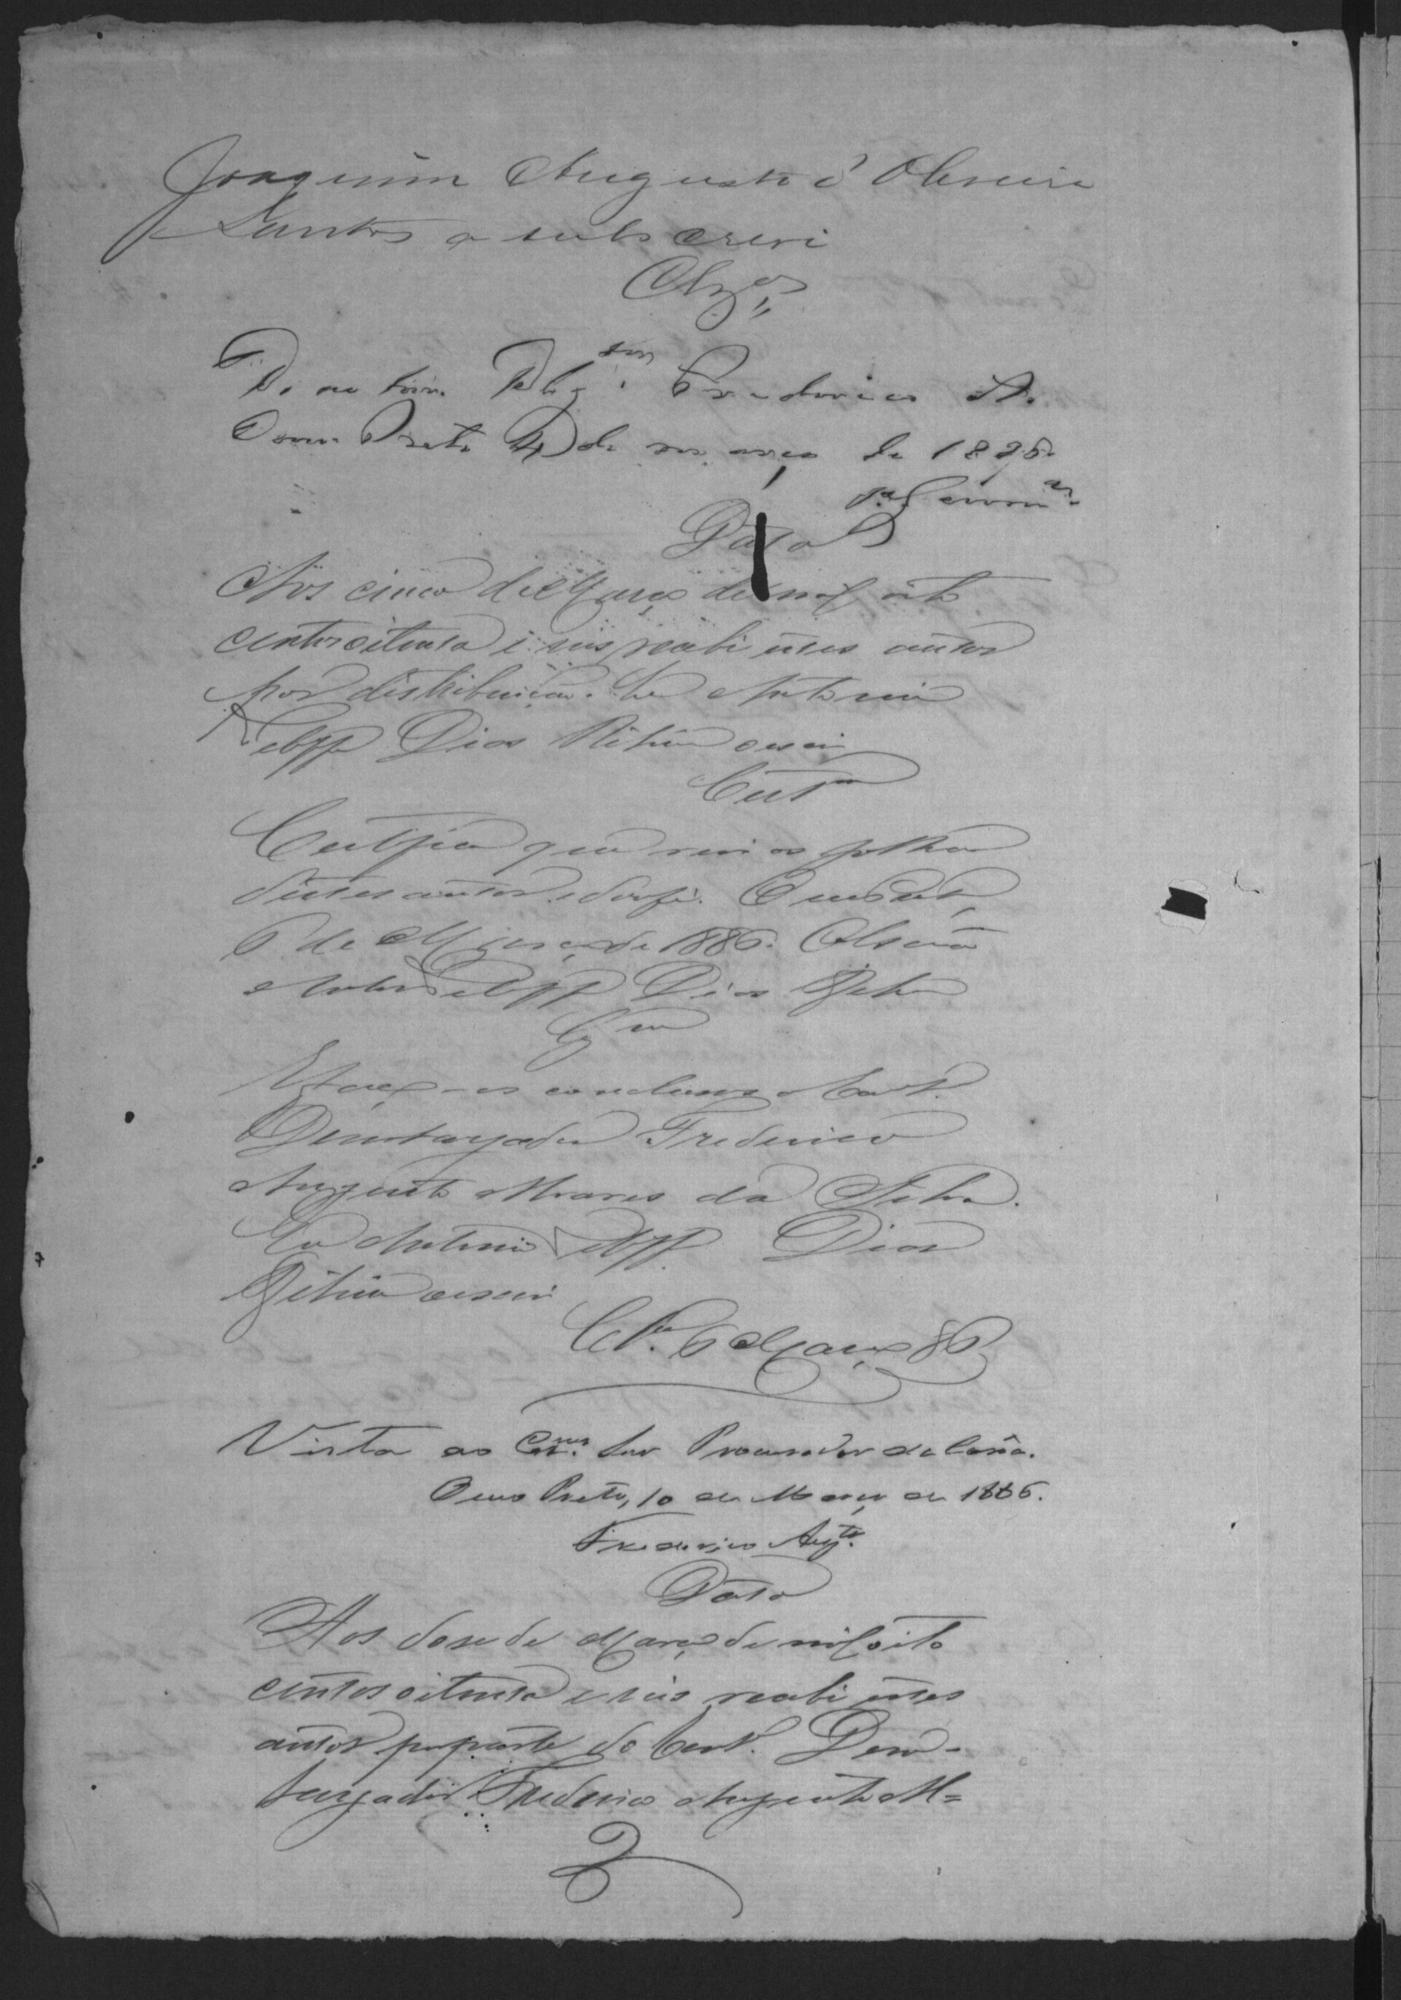 Joaquim Augusto d'Oliveira
Santos o subscrevi
Clz.os
D. ao Sñr. Dezor. Frederico A.
Ouro Preto 4 de março de 1886.
Data
Aos cinco de Março de mil oito
centos oitenta e seis recebi estes autos
por distribuição. Eu Antonio
Dias Ribeiro escrevi
Certam
Certifico que revi as folhas
destes autos e dou fé. Ouro Preto,
6 de Março de 1886. O Escrivão
Antonio Dias Ribro
Clzm
E faço-os conclusos ao Cons.
Desembargador Frederico
Augusto Alvares da Silva.
Eu Antonio Dias
Ribeiro escrevi
Clzm 6 Março 86
Vista ao Exmo. Snr. Procurador da Corôa.
Ouro Preto, 10 de Março de 1886.
Frederico Augto.
Data
Aos dose de Março de mil oito
centos oitenta e seis recebi estes
autos por parte do Cons. Desem-
bargador Frederico Augusto Al=